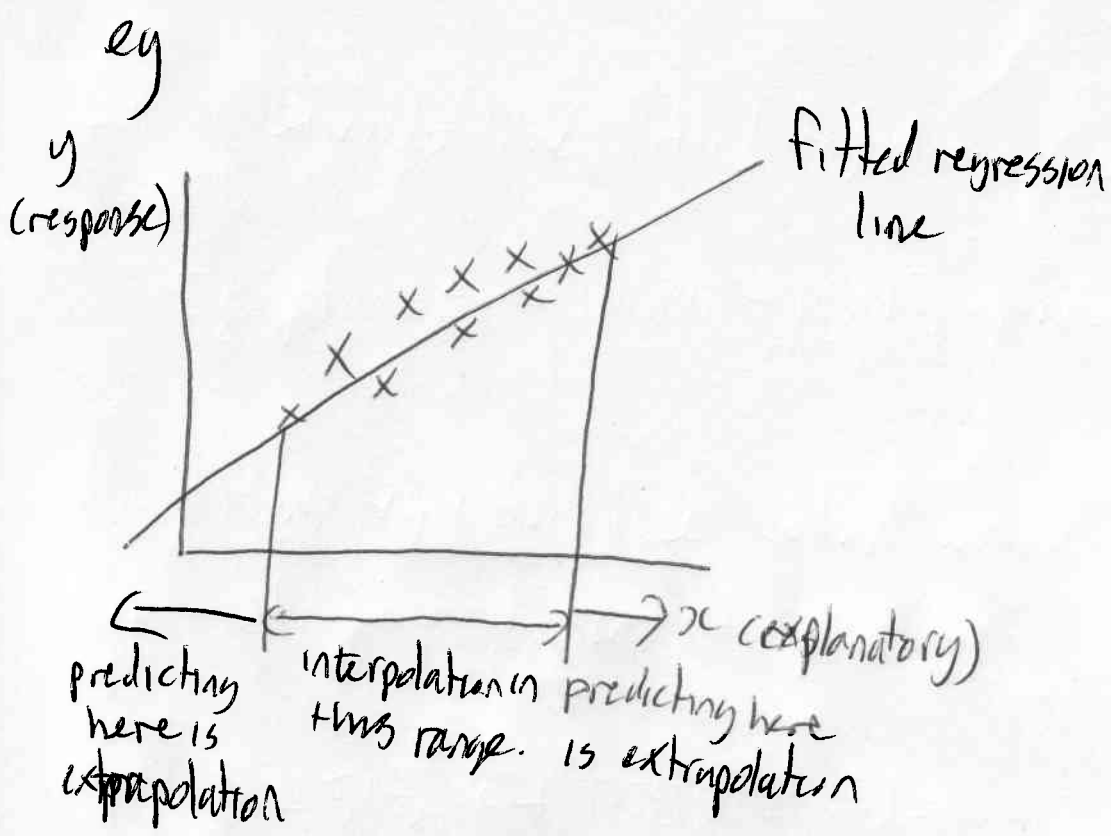 eg
y
(response)
fitted regression
line
x (explanatory)
predicting
here is
extrapolation
interpolation in
this range.
predicting here
is extrapolation